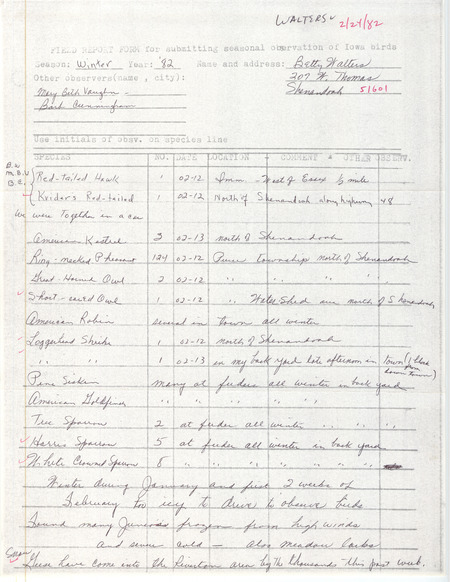 WALTERS 2/24/82
FIELD REPORT FORM for submitting seasonal observation of Iowa birds
Season: Winter Year: '82 Name and address: Betty Walters
Other observers(name , city): 207 W. Thomas
Mary Beth Vaughn Shenandoah 51601
Barb Cunningham
Use initials of obsv. on species line
SPECIES NO. DATE LOCATION COMMENT OTHER OBSERV.
B.W. M.B.V. B.C. Red-tailed Hawk 1 02-12 West of Essex ½ mile
Kriders Red-tailed 1 02-12 North of Shenandoah along highway 48
We were together in a car
American Kestrel 3 02-13 north of Shenandoah
Ring-necked Pheasant 124 02-12 township north of Shenandoah
Great Horned Owl 2 02-12 " " " "
Short-eared Owl 1 02-12 " Water Shed area north of Shenandoah
American Robin several in town all winter
Loggerhead Shrike 1 02-12 north of Shenandoah
" " 1 02-13 in my back yard late afternoon in town (1 block from down town)
Pine Siskin many at feeders all winter in back yard
American Goldfinch " " " " " "
Tree Sparrow 2 at feeder all winter " " "
Harris Sparrow 5 at feeder all winter in back yard
White Crowned Sparrow 8 " " " " " "
Winter during January and first 2 weeks of
February too icy to drive to observe birds
Found many Juncos frozen from high winds
and severe cold - also meadow larks
Geese have come into the Riverton area by the thousands this past week.